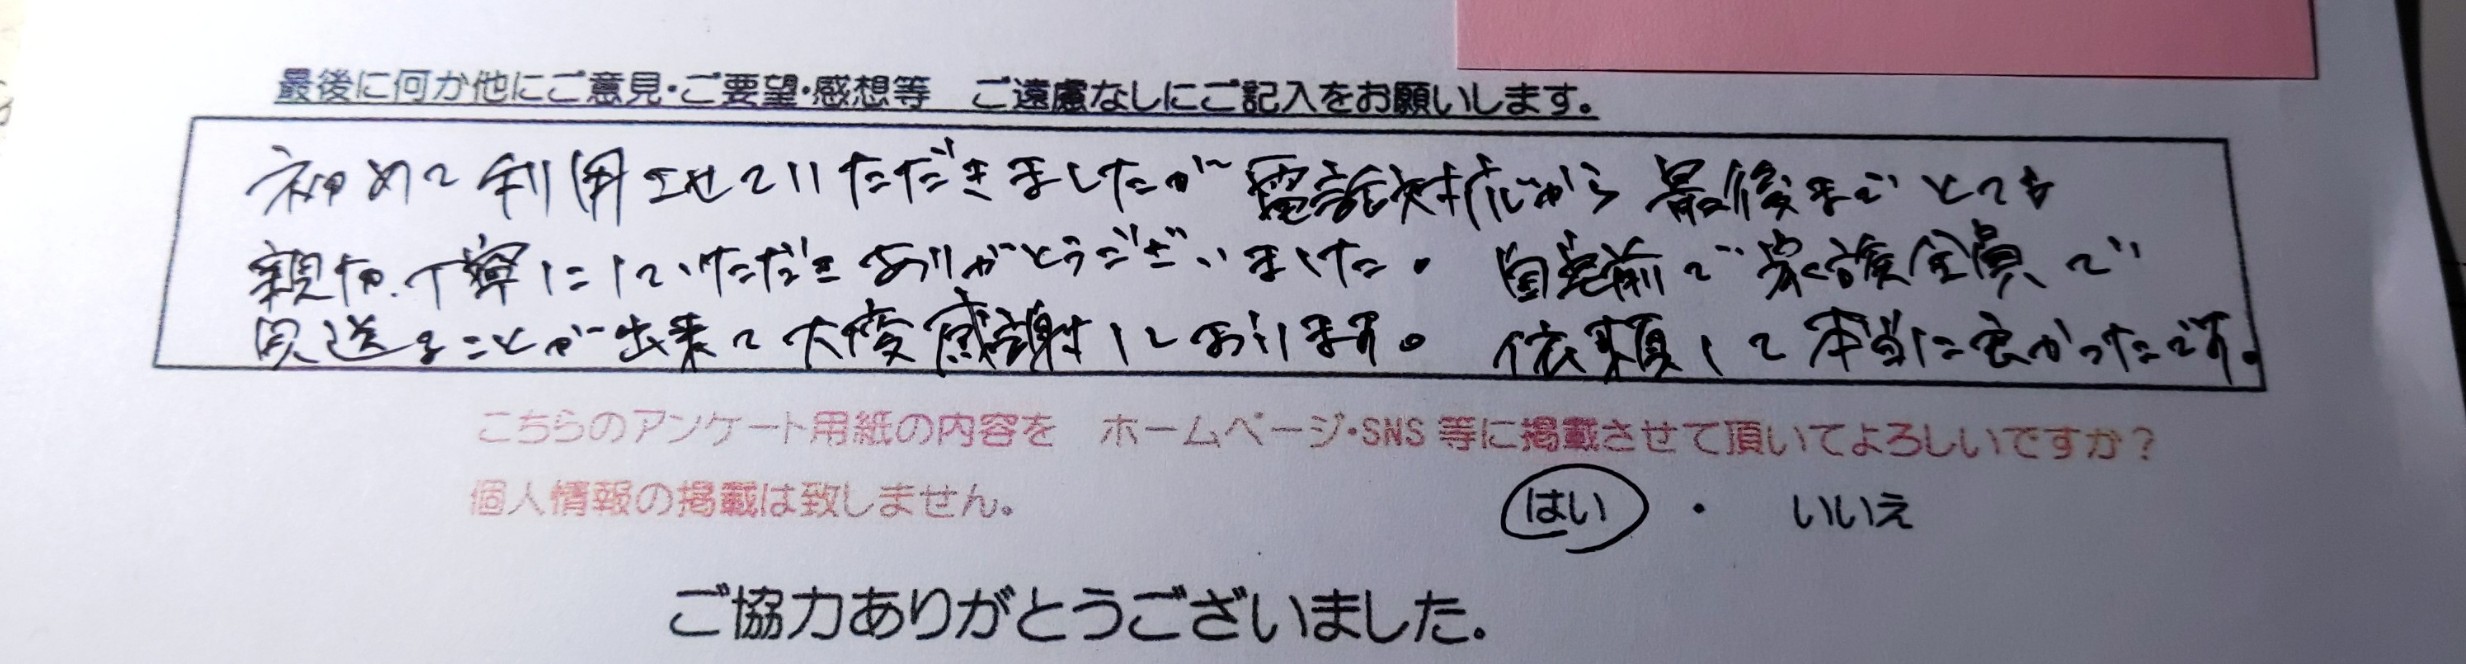 最後に何か他にご意見・ご要望・感想等　ご遠慮なしにご記入をお願いします。
初めて利用させていただきましたが電話対応から最後までとても
親切、丁寧にしていただきありがとうございました。自宅前で家族全員で
見送ることが出来て大変感謝しております。依頼して本当に良かったです。
こちらのアンケート用紙の内容を　ホームページ・SNS 等に掲載させて頂いてよろしいですか？
個人情報の掲載は致しません。　はい ・ いいえ
ご協力ありがとうございました。